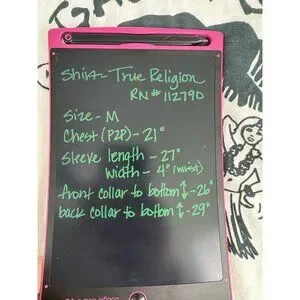 Shirt- True Religion
RN# 112790
Size - M
Chest (P2P) - 21"
Sleeve length - 27"
Width - 4" (wrist)
front collar to bottom ↕ - 26"
back collar to bottom ↕ - 29"